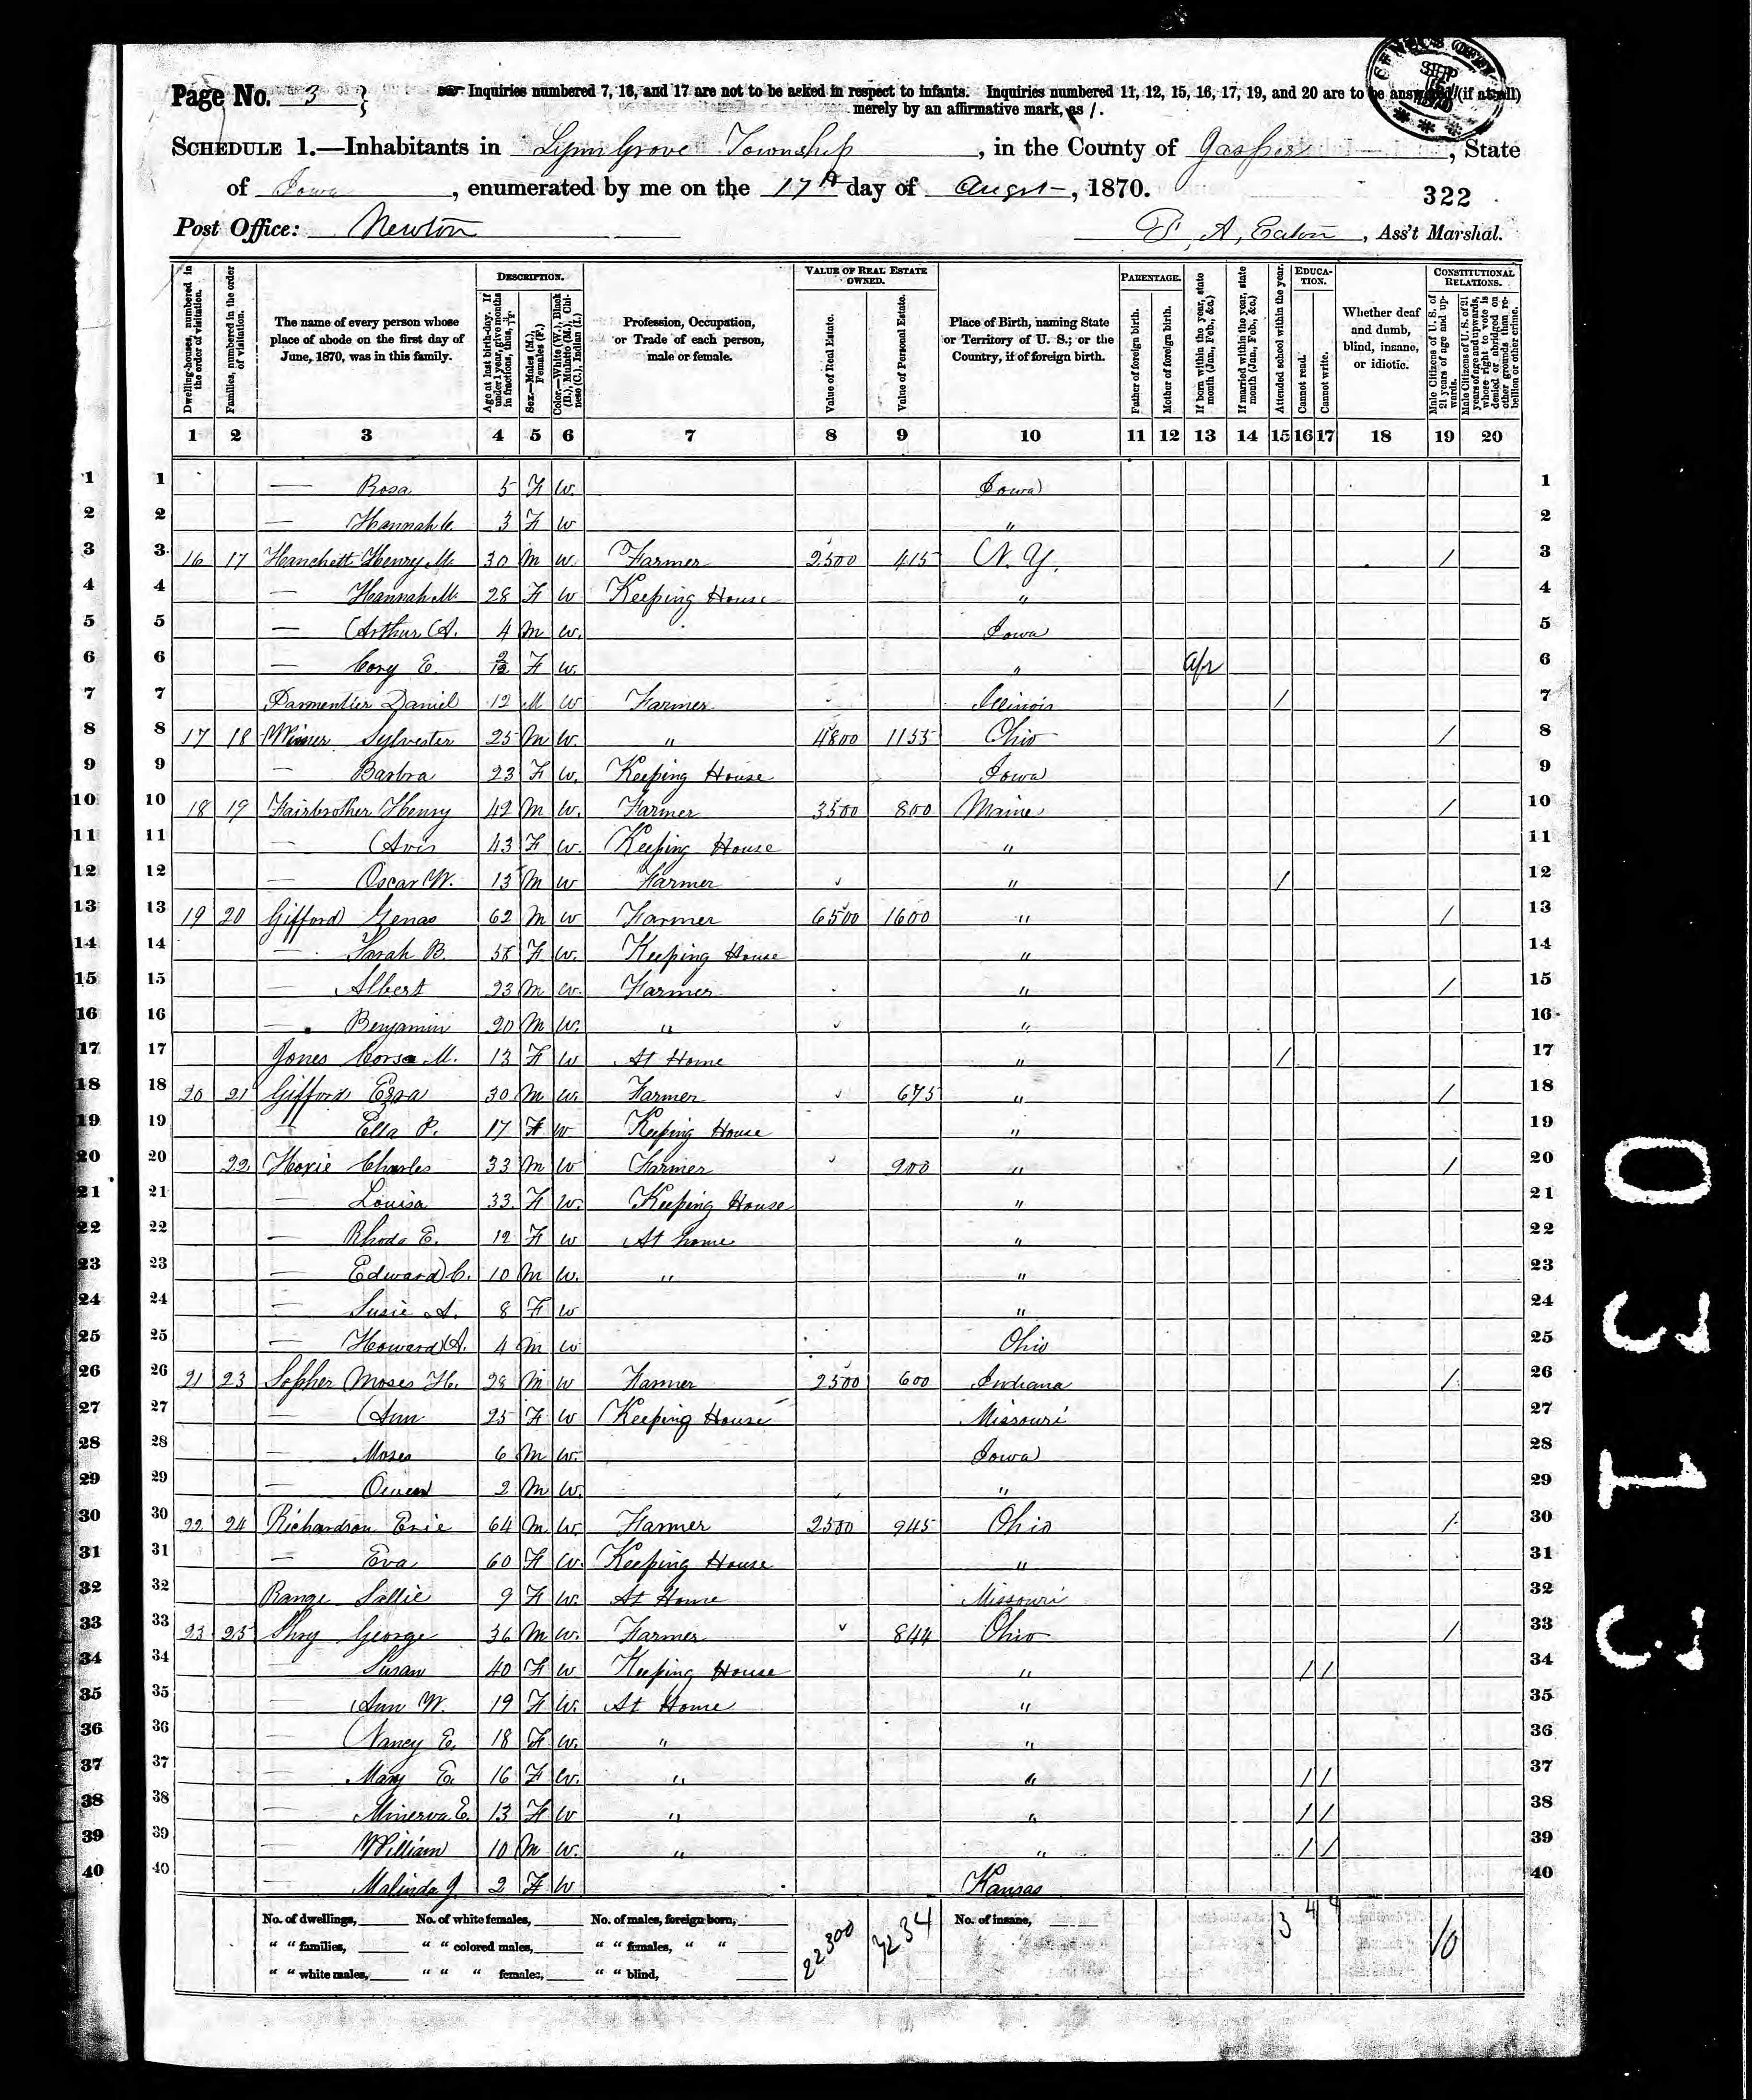 Page No. 3 } Inquiries numbered 7, 16, and 17 are not to be asked in respect to infants. Inquiries numbered 11, 12, 15, 16, 17, 19, and 20 are to be answered (if at all)
merely by an affirmative mark, as /.
SCHEDULE 1.—Inhabitants in Lynn Grove Township, in the County of Jasper, State
of Iowa, enumerated by me on the 17th day of Augst, 1870.
322
Post Office: Newton
A. Eaton, Ass't Marshal.
Dwelling-houses, numbered in the order of visitation.
Families, numbered in the order of visitation.
The name of every person whose place of abode on the first day of June, 1870, was in this family.
DESCRIPTION.
Age at last birth-day. If under 1 year, give months in fractions, thus, 3/12.
Sex.—Males (M.), Females (F.)
Color.—White (W.), Black (B.), Mulatto (M.), Chinese (C.), Indian (I.)
Profession, Occupation, or Trade of each person, male or female.
VALUE OF REAL ESTATE OWNED.
Value of Real Estate.
Value of Personal Estate.
Place of Birth, naming State or Territory of U. S.; or the Country, if of foreign birth.
PARENTAGE.
Father of foreign birth.
Mother of foreign birth.
If born within the year, state month (Jan., Feb., &c.)
If married within the year, state month (Jan., Feb., &c.)
Attended school within the year.
EDUCATION.
Cannot read.
Cannot write.
Whether deaf and dumb, blind, insane, or idiotic.
CONSTITUTIONAL RELATIONS.
Male Citizens of U. S. of 21 years of age and upwards.
Male Citizens of U. S. of 21 years of age and upwards, whose right to vote is denied or abridged on other grounds than rebellion or other crime.
1 2 3 4 5 6 7 8 9 10 11 12 13 14 15 16 17 18 19 20
1 1 — Rosa 5 F W. Iowa 1
2 2 — Hannah C. 3 F W " 2
3 3 16 17 Hanchett Henry M. 30 M W. Farmer 2500 415 N. Y. / 3
4 4 — Hannah M. 28 F W Keeping House " 4
5 5 — Arthur A. 4 M W. Iowa 5
6 6 — Cory E. 2/12 F W. " Apr 6
7 7 Parmentier Daniel 12 M W Farmer Illinois / 7
8 8 17 18 Sylvester 25 M W. " 4800 1155 Ohio / 8
9 9 — Barbra 23 F W. Keeping House Iowa 9
10 10 18 19 Fairbrother Henry 42 M W. Farmer 3500 800 Maine / 10
11 11 — Avis 43 F W. Keeping House " 11
12 12 — Oscar W. 13 M W Farmer " / 12
13 13 19 20 Gifford 62 M W Farmer 6500 1600 " / 13
14 14 — Sarah B. 58 F W. Keeping House " 14
15 15 — Albert 23 M W. Farmer " / 15
16 16 — Benjamin 20 M W. " " 16
17 17 Jones M. 13 F W At Home " / 17
18 18 20 21 Gifford Ezra 30 M W. Farmer 675 " / 18
19 19 — Ella P. 17 F W Keeping House " 19
20 20 22 Hoxie Charles 33 M W Farmer 900 " / 20
21 21 — Louisa 33 F W. Keeping House " 21
22 22 — Rhoda E. 12 F W At home " 22
23 23 — Edward C. 10 M W. " " 23
24 24 — Susie A. 8 F W " 24
25 25 — Howard A. 4 M W Ohio 25
26 26 21 23 Sopher Moses H. 28 M W Farmer 2500 600 Indiana / 26
27 27 — Ann 25 F W Keeping House Missouri 27
28 28 — Moses 6 M W. Iowa 28
29 29 — Owen 2 M W. " 29
30 30 22 24 Richardson 64 M W. Farmer 2500 945 Ohio / 30
31 31 — Eva 60 F W. Keeping House " 31
32 32 Range Sallie 9 F W. At Home Missouri 32
33 33 23 25 George 36 M W. Farmer 844 Ohio / 33
34 34 — Susan 40 F W Keeping House " / / 34
35 35 — Ann W. 19 F W. At Home " 35
36 36 — Nancy E. 18 F W. " " 36
37 37 — Mary E. 16 F W. " " / / 37
38 38 — Minerva E. 13 F W " " / / 38
39 39 — William 10 M W. " " / / 39
40 40 — Malinda J. 2 F W Kansas 40
No. of dwellings, No. of white females, No. of males, foreign born, 22300 No. of insane, 3 4 4 10
" " families, " " colored males, " " females, " "
" " white males, " " " females, " " blind,
0313